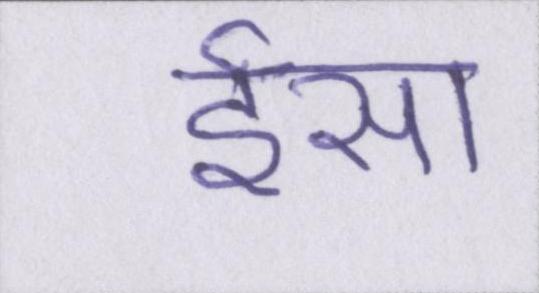 ईसा